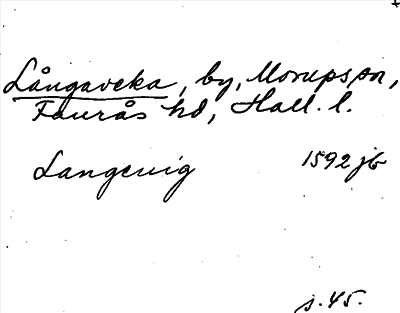 Långaveka, by, Morups sn,
Faurås hd, Hall. l.
Langeuig 1592 jb
s. 45.